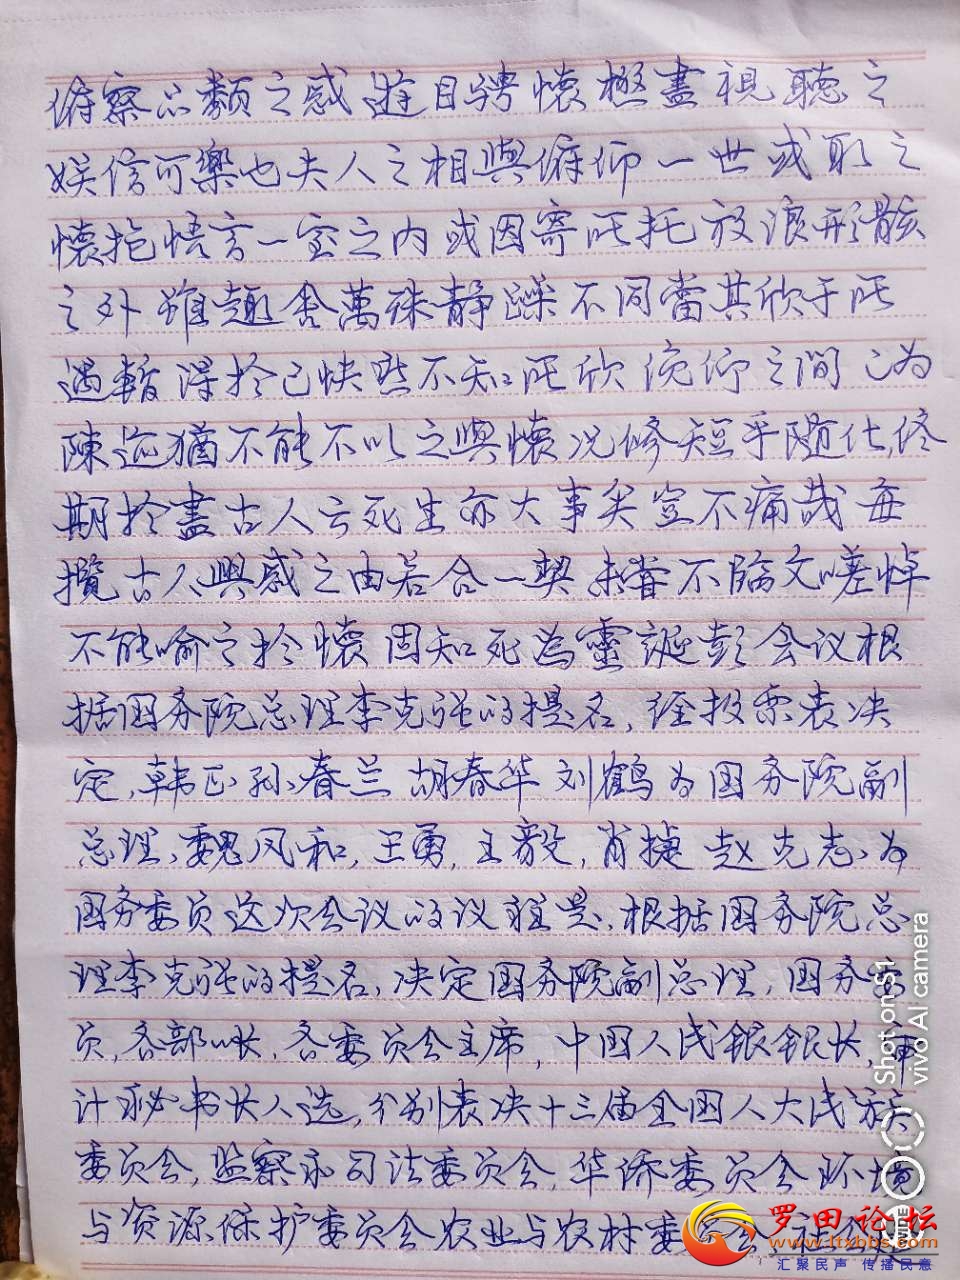 俯察品類之盛遊目骋懷極盡視聽之
娱信可樂也夫人之相與俯仰一世或取之
懷抱悟言一室之内或因寄所托放浪形骸
之外雖趣舍萬殊静躁不同當其欣于所
遇暫得於己快然不知所欣俛仰之間已为
陳迹猶不能不以之興懷况修短乎随化,终
期於盡古人云死生亦大事矣豈不痛哉每
攬古人興感之由若合一契未嘗不臨文嗟悼
不能喻之於懷固知死為靈誕彭会议根
据国务院总理李克强的提名,经投票表决
定,韩正,孙春兰胡春华刘鹤为国务院副
总理,魏凤和,王勇,王毅,肖捷赵克志,为
国务委员这次会议的议程是,根据国务院总
理李克强的提名,决定国务院副总理,国务委
员,各部部长,各委员会主席,中国人民银银长,审
计秘书长人选,分别表决十三届全国人大民族
委员会,监察和司法委员会,华侨委员会环境
与资源保护委员会农业与农村委员会,
Shot on S1
vivo AI camera
VINE
罗田论坛
www.ltxbbs.com
汇聚民声 传播民意